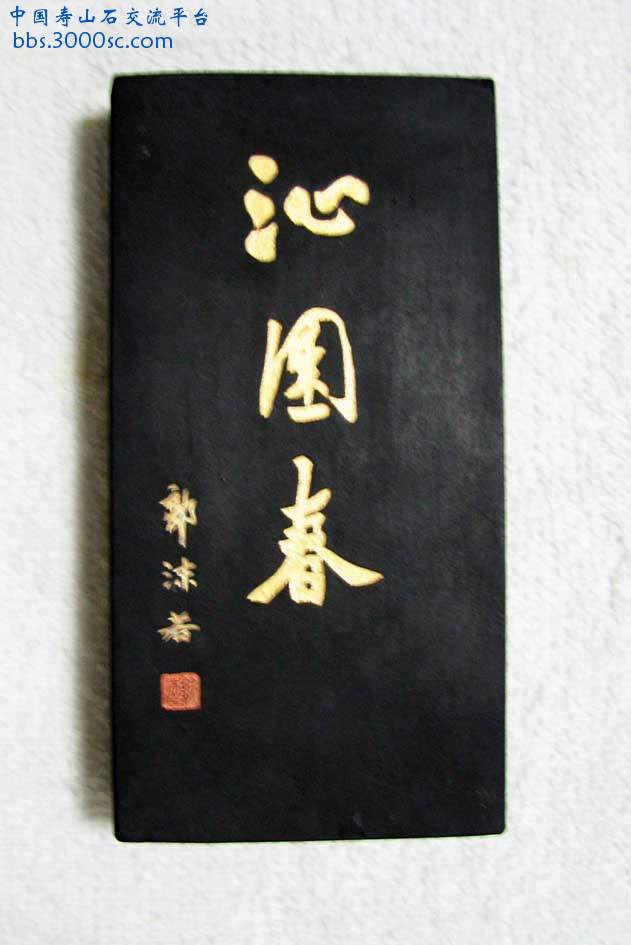 中国寿山石交流平台
bbs.3000sc.com
沁園春
郭沫若